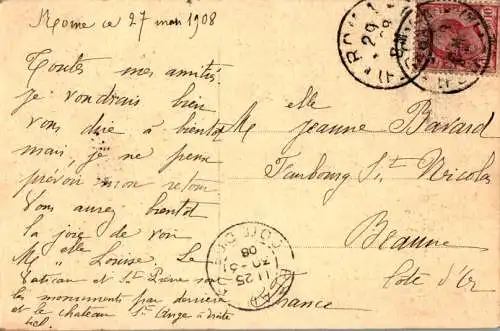 Rome ce 27 mars 1908
Toutes mes amitiés.
je voudrais bien
vous dire à bientôt
mais, je ne peux
prévoir mon retour
Vous aurez bientôt
la joie de voir
Melle Louise. Le
Vatican et St Pierre
les monuments par derrière
et le chateau St Ange à droite
Melle Jeanne Bavard
Faubourg St Nicolas
Beaune
Côte d'Or
France
ROMA
29
COTE D'OR
11 25
30 -3
08